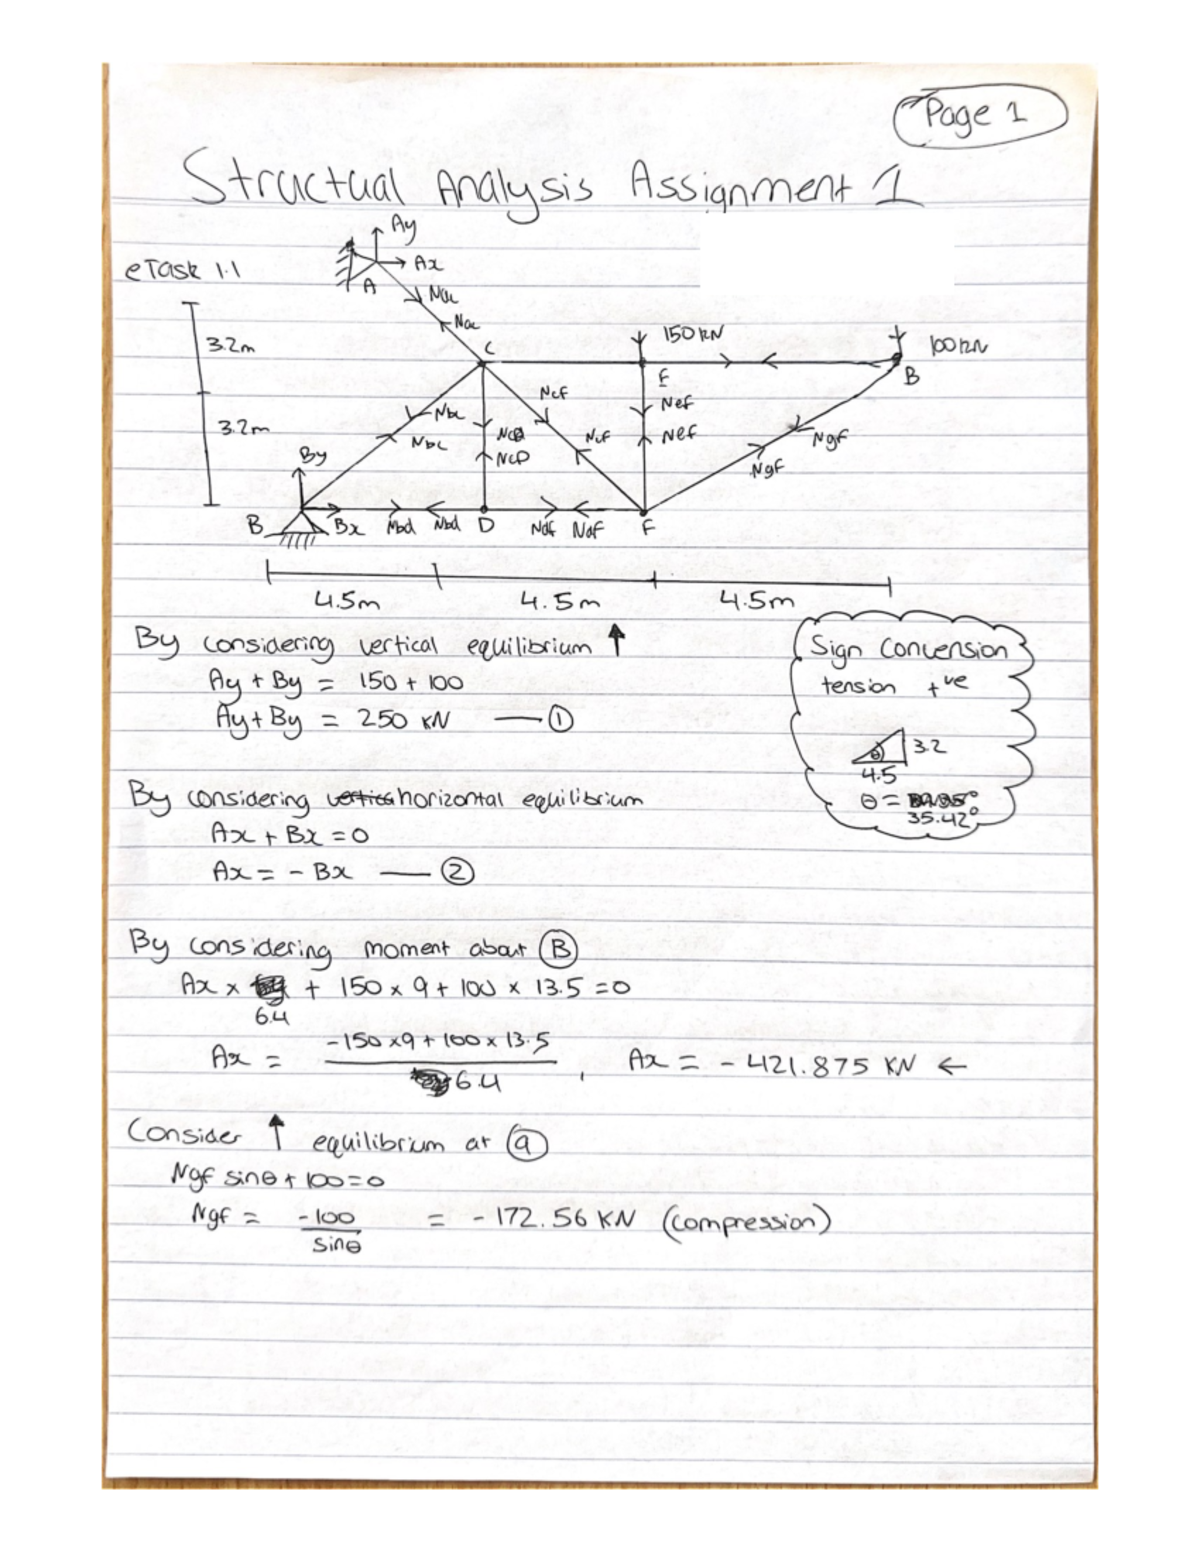 Page 1
Structual Analysis Assignment 1
eTask 1.1
Ay
Ax
A
Nac
Nac
3.2m
3.2m
C
150 kN
E
100kN
B
Ncf
Nef
Nef
Nbc
Nbc
NcD
NcD
Ncf
Ngf
Ngf
By
B
Bx
Nbd
Nbd
D
Ndf
Ndf
F
4.5m
4.5m
4.5m
By considering vertical equilibrium ↑
Ay + By = 150 + 100
Ay + By = 250 kN — ①
Sign Convension
tension +ve
θ
3.2
4.5
θ =
35.42°
By considering horizontal equilibrium
Ax + Bx = 0
Ax = - Bx — ②
By considering moment about Ⓑ
Ax × + 150 × 9 + 100 × 13.5 = 0
6.4
Ax = -150 × 9 + 100 × 13.5 / 6.4 , Ax = - 421.875 KN ←
Consider ↑ equilibrium at ⓖ
Ngf sinθ + 100 = 0
Ngf = -100 / sinθ = - 172.56 KN (compression)